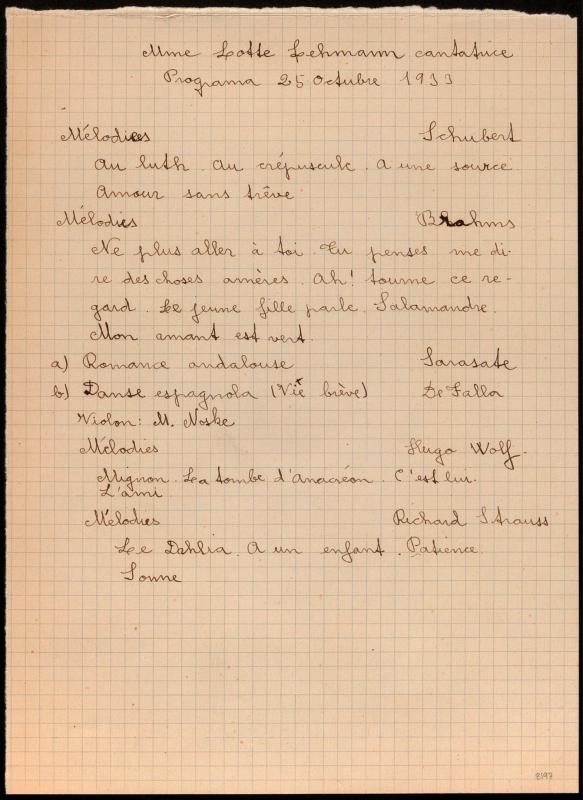 Mme Lotte Lehmann cantatrice
Programa 25 Octubre 1933
Mélodies Schubert
Au luth. Au crépuscule. A une source
Amour sans trêve
Mélodies Brahms
Ne plus aller à toi. Tu penses me di-
re des choses amères. Ah! tourne ce re-
gard. Le jeune fille parle. Salamandre.
Mon amant est vert.
a) Romance andalouse Sarasate
b) Danse espagnola (Vie brève) De Falla
Violon: M. Noske
Mélodies Hugo Wolf.
Mignon. La tombe d'Anacréon. C'est lui.
L'ami
Mélodies Richard Strauss
Le Dahlia. A un enfant. Patience.
Sonne
2197